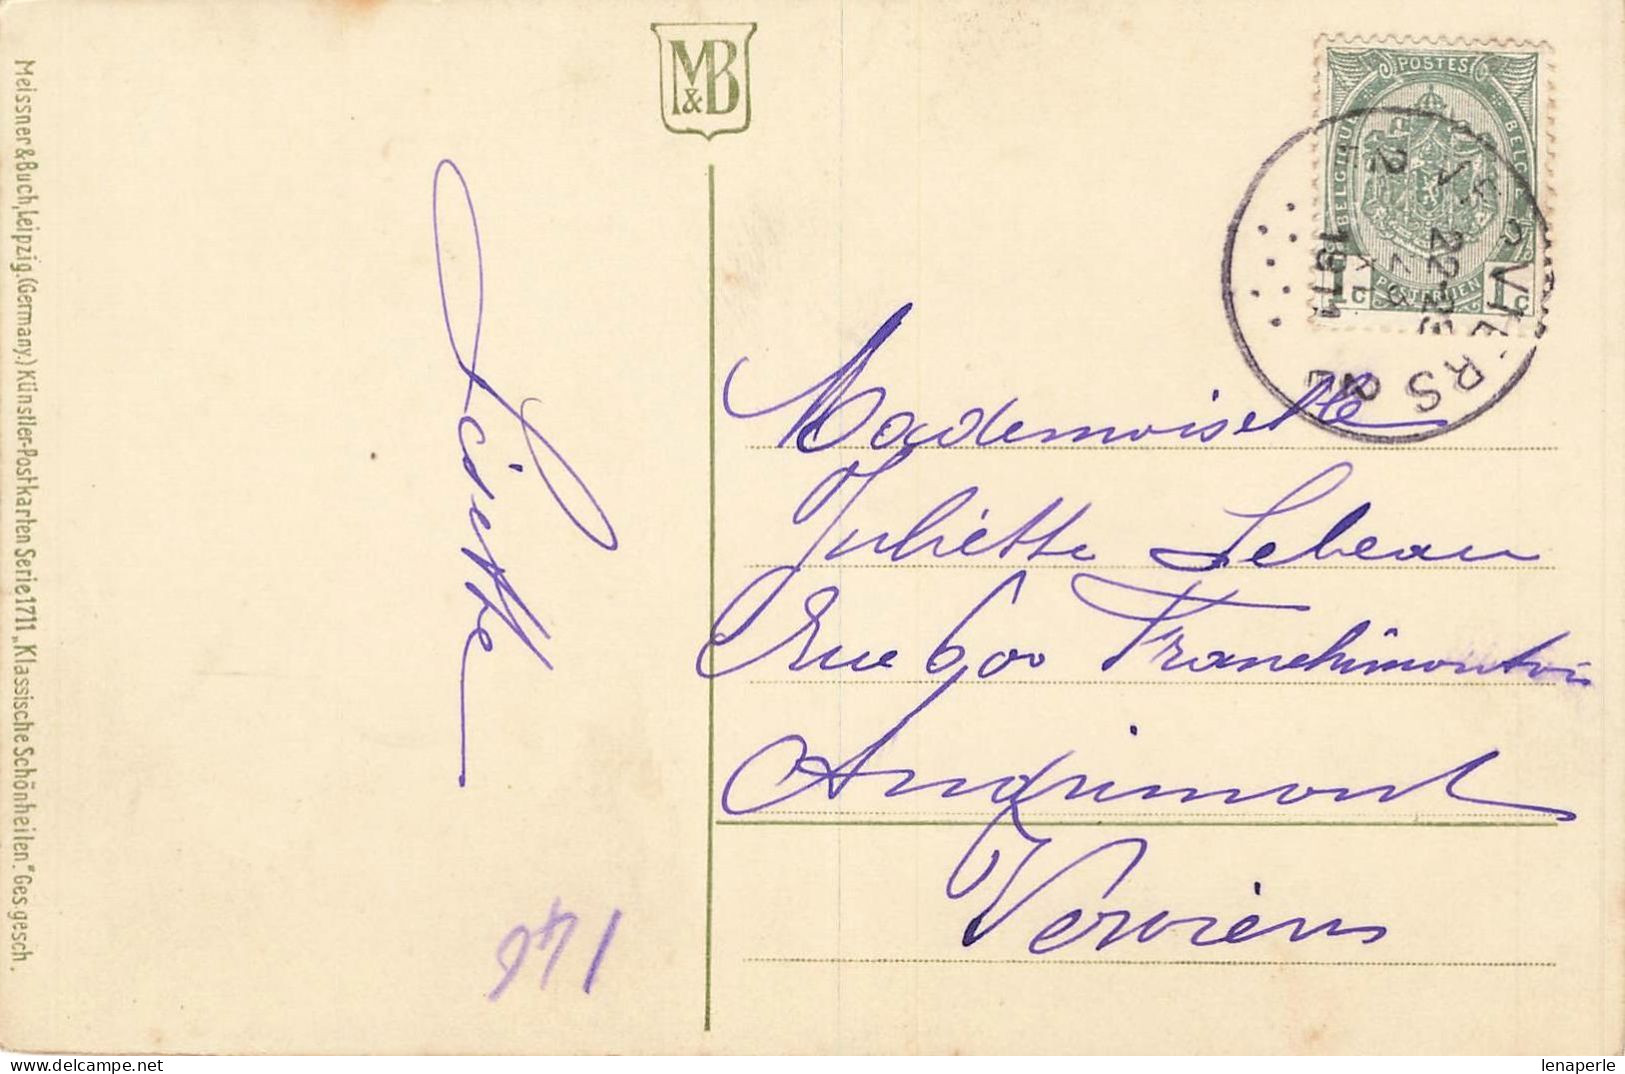 M&B
Meissner & Buch, Leipzig. (Germany.) Künstler-Postkarten Serie 1711 „Klassische Schönheiten." Ges. gesch.
POSTES
BELGIQUE
BELGIË
POSTERIJEN
1c 1c
1911
Lisette
Mademoiselle
Juliette Lebeau
Rue 600 Franchimontois
Andrimont
Verviers
146
delcampe.net
lenaperle